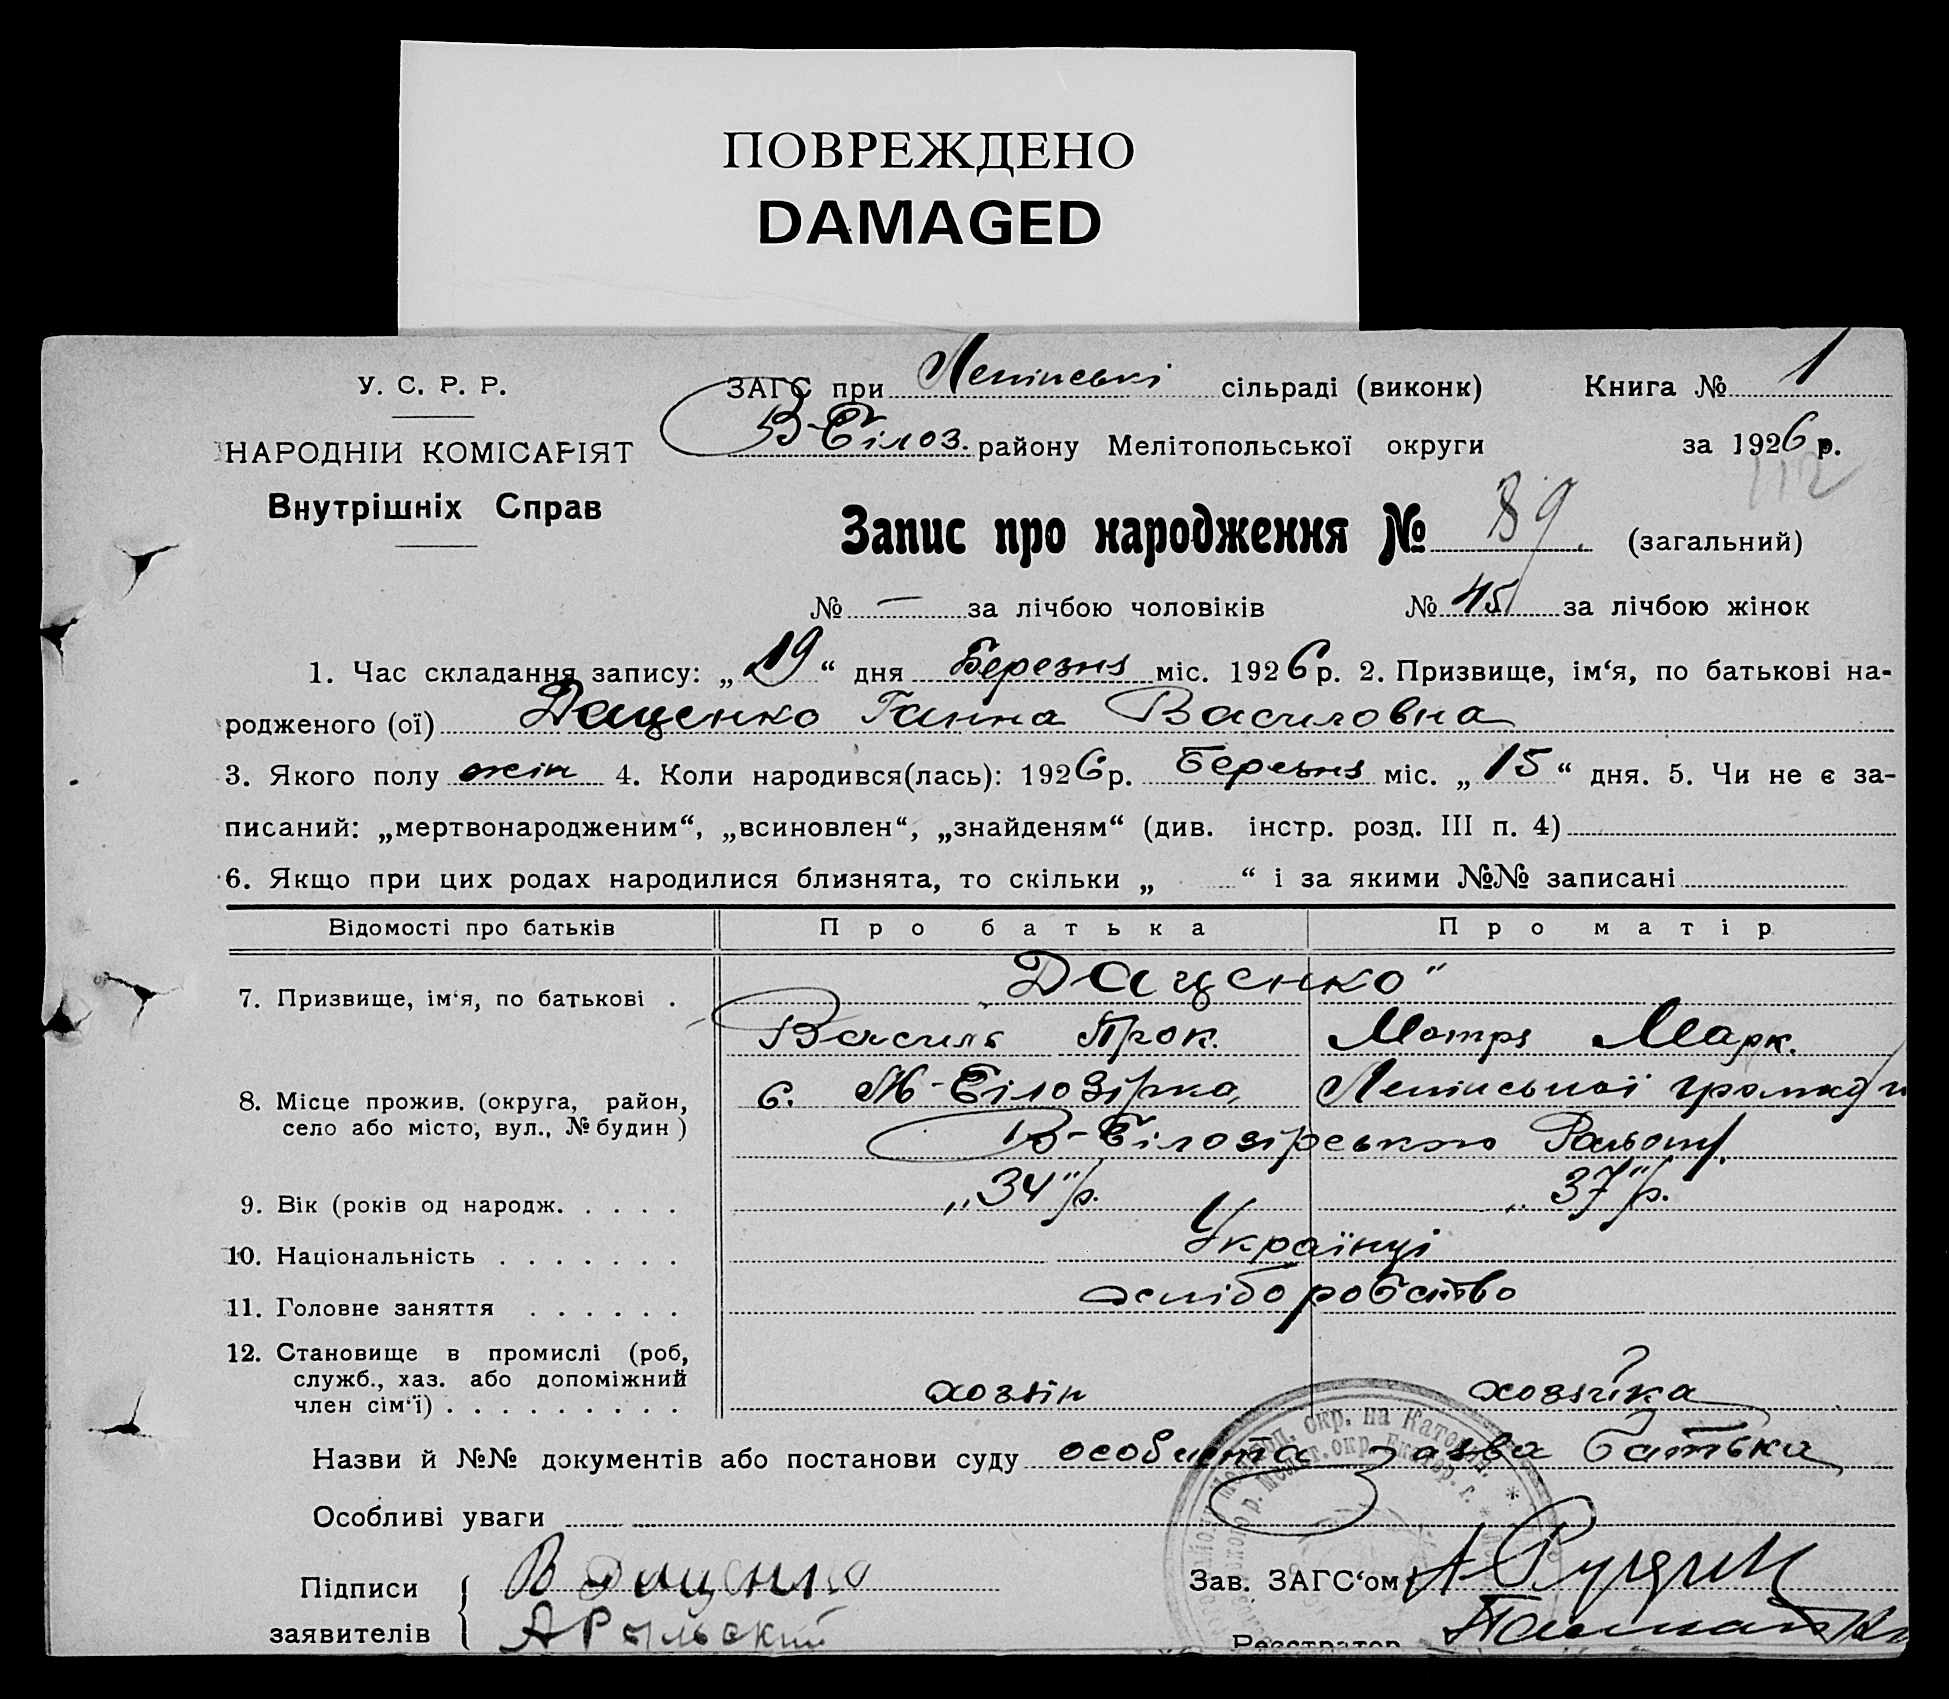 ПОВРЕЖДЕНО
DAMAGED
У. С. Р. Р.
ЗАГС при Ленінські сільраді (виконк) Книга № 1
В-Білоз. району Мелітопольської округи за 1926 р.
112
НАРОДНІЙ КОМІСАРІЯТ
Внутрішніх Справ
Запис про народження № 89 (загальний)
№ — за лічбою чоловіків № 45 за лічбою жінок
1. Час складання запису: „19“ дня Березня міс. 1926 р. 2. Призвище, ім‘я, по батькові на-
родженого (ої) Даценко Ганна Василовна
3. Якого полу жін 4. Коли народився(лась): 1926 р. Березня міс. „15“ дня. 5. Чи не є за-
писаний: „мертвонародженим“, „всиновлен“, „знайденям“ (див. інстр. розд. III п. 4)
6. Якщо при цих родах народилися близнята, то скільки „ “ і за якими №№ записані
Відомості про батьків Про батька Про матір
7. Призвище, ім‘я, по батькові . „Даценко“
Василь Прок. Мотря Марк.
8. Місце прожив. (округа, район, с. М-Білозірка, Ленінської громади
село або місто, вул., № будин) В-Білозірського Району.
9. Вік (років од народж. . . . . „34“ р. „37“ р.
10. Національність . . . . . . . Українці
11. Головне заняття . . . . . . хліборобство
12. Становище в промислі (роб,
служб., хаз. або допоміжний хозяін хозяйка
член сім‘ї) . . . . . . . . .
Назви й №№ документів або постанови суду особиста заява батька
Особливі уваги
Підписи В Даценко Зав. ЗАГС‘ом
заявителів А Рыльский Реєстратор